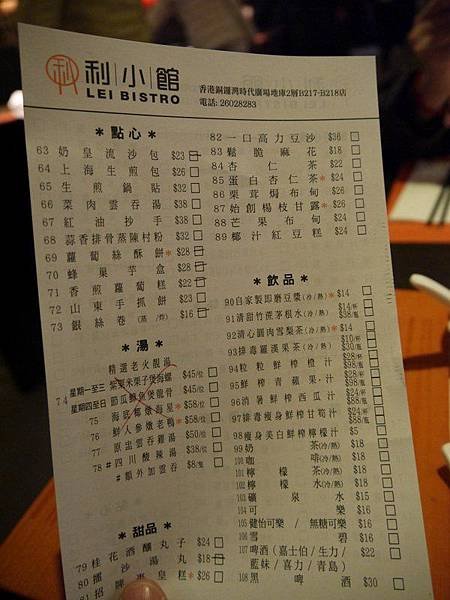 利小館
LEI BISTRO
香港銅鑼灣時代廣場地庫2層B217-B218店
電話: 26028283
＊點心＊
63 奶皇流沙包 $23
64 上海生煎包 $26
65 生煎鍋貼 $32
66 菜肉雲吞湯 $38
67 紅油抄手 $38
68 蒜香排骨蒸陳村粉 $32
69 蘿蔔絲酥餅* $28
70 蜂巢芋盒 $28
71 香煎蘿蔔糕 $22
72 山東手抓餅 $23
73 銀絲卷 (蒸/炸) $16
＊湯＊
精選老火靚湯
74 星期一至三 紫粟米栗子煲海螺 $45/位
星期四至日 節瓜鱆魚煲龍骨 $45/位
75 海底椰燉海星* $58/位
76 鮮人參燉老鴨* $58/位
77 原盅雲吞雞湯 $50/位
78 #四川酸辣湯 $38/位
#額外加雲吞 $8/隻
＊甜品＊
79 桂花酒釀丸子 $24
80 擂沙湯丸 $18
81 招牌棗皇糕* $26
82 一口高力豆沙 $36
83 鬆脆麻花 $18
84 杏仁茶 $22
85 蛋白杏仁茶* $24
86 栗茸焗布甸 $26
87 始創楊枝甘露* $26
88 芒果布甸 $24
89 椰汁紅豆糕 $24
＊飲品＊
90 自家製即磨豆漿(冷/熱)* $14
91 清甜竹蔗茅根水(冷/熱) $14/杯 $38/瓶
92 清心圓肉雪梨茶(冷/熱)* $14/杯 $38/瓶
93 排毒羅漢果茶(冷/熱) $10/杯 $30/瓶
94 粒粒鮮榨橙汁 $28/杯 $98/瓶
95 鮮榨青蘋果汁 $28/杯 $98/瓶
96 消暑鮮榨西瓜汁 $28/杯 $98/瓶
97 排毒瘦身鮮榨甘筍汁 $28/杯 $98/瓶
98 瘦身美白鮮榨檸檬汁 $5
99 奶茶(冷/熱) $18
100 咖啡(冷/熱) $18
101 檸檬茶(冷/熱) $18
102 檸檬水(冷/熱) $18
103 礦泉水 $15
104 可樂 $16
105 健怡可樂 / 無糖可樂 $16
106 雪碧 $16
107 啤酒(嘉士伯/生力/ $22
藍妹/喜力/青島)
108 黑啤酒 $30